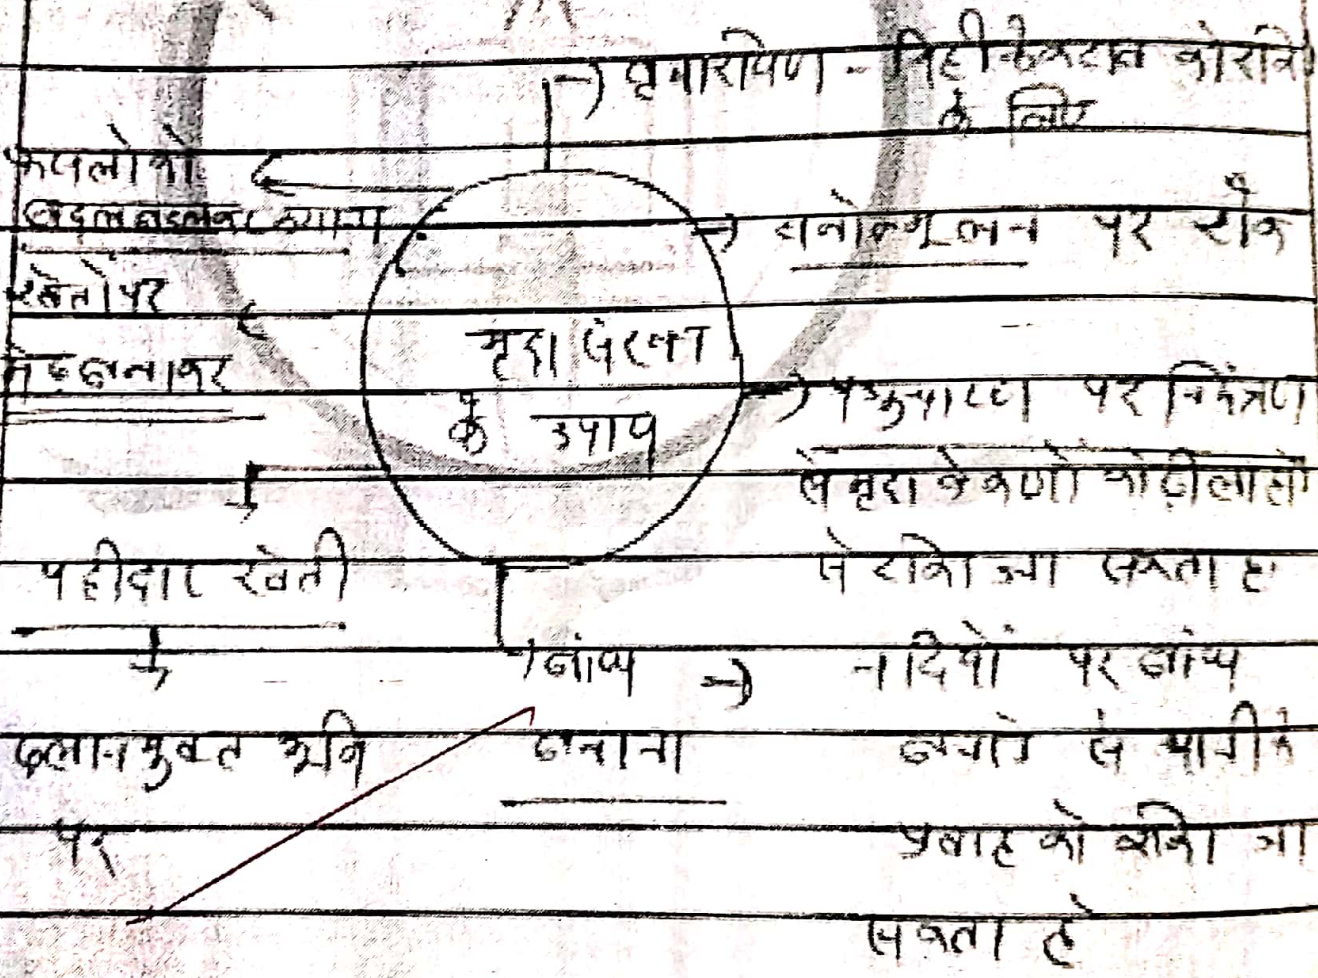 वृक्षारोपण - मिट्टी के कटाव को रोकने
के लिए
फसलों को
अदल बदलकर उगाना
वनोन्मूलन पर रोक
खेतों पर
मेढ़ बनाकर
मृदा संरक्षण
के उपाय
पशुचारण पर नियंत्रण
से मृदा के कणों को ढीला होने
से रोका जा सकता है
पट्टीदार खेती
ढलान युक्त भूमि
पर
बांध
बनाना
नदियों पर बांध
बनाने से पानी के
प्रवाह को रोका जा
सकता है